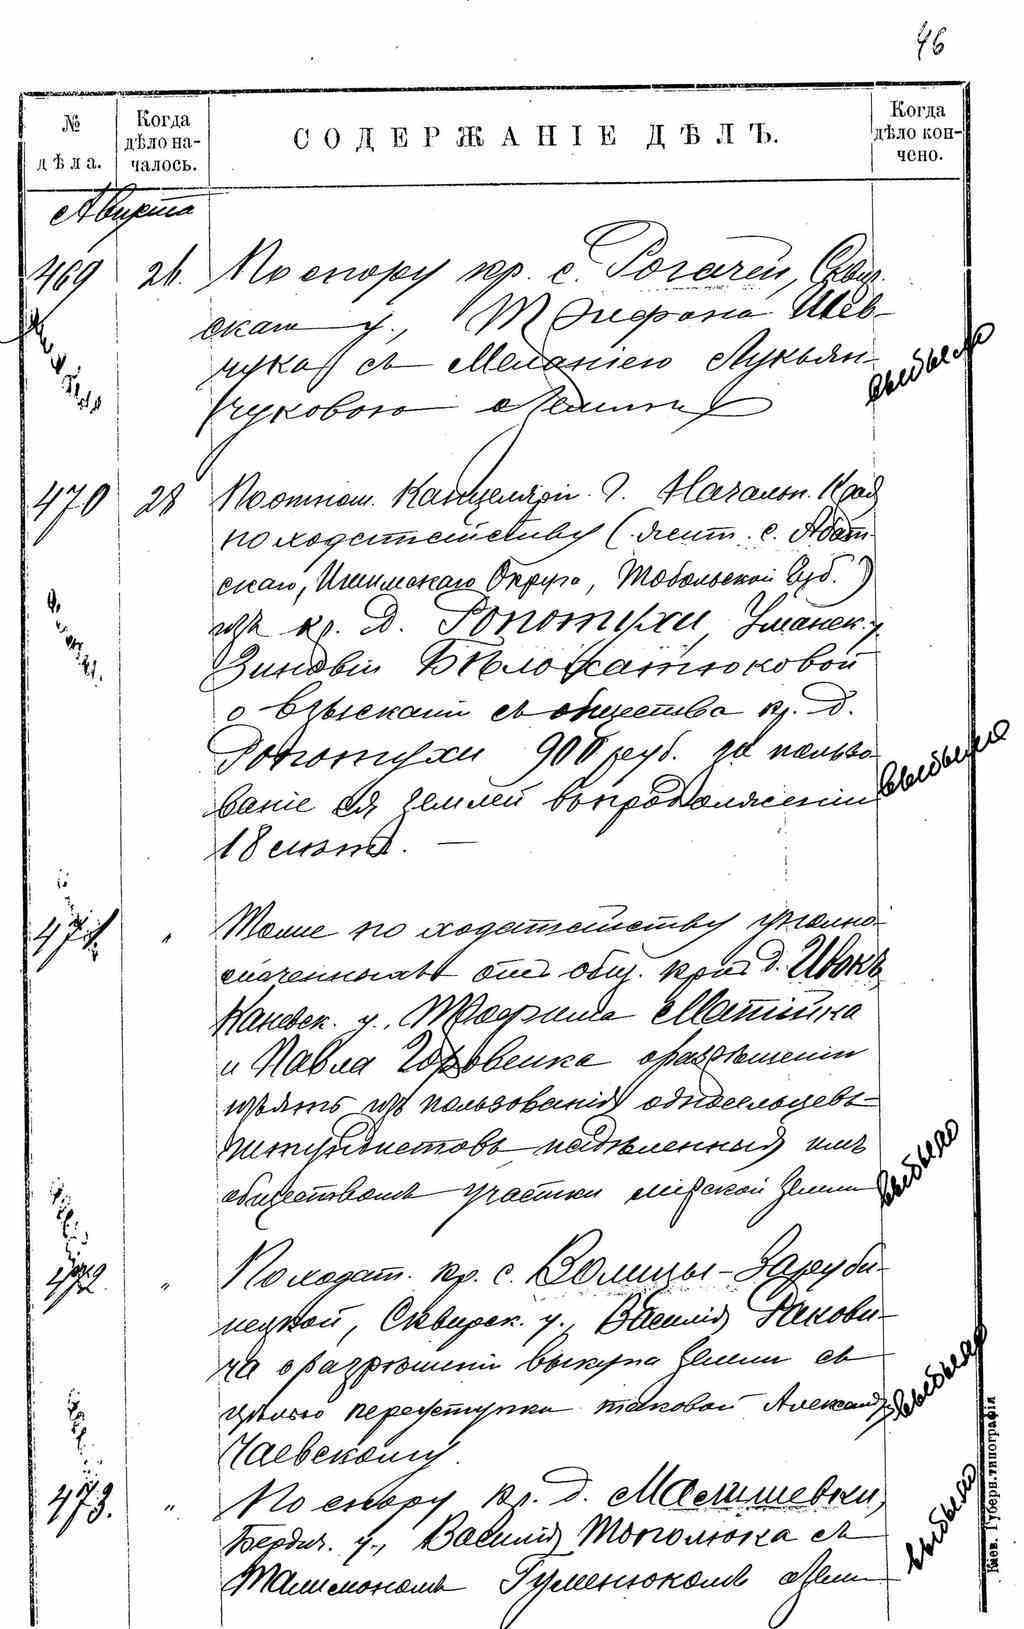 46
№ дѣла.
Когда дѣло началось.
СОДЕРЖАНІЕ ДѢЛЪ.
Когда дѣло кончено.
Августа
469 26. По спору кр. с. Рогачей, Сквир-
скаго у., Трифона Шев-
чука съ Меланіею Лукьян-
чуковою о земли
выбыло
470 28 По отнош. Канцеляріи Г. Начальн. Края
по ходатайству (. жит. с. Абат-
скаго, Ишимскаго Округа, Тобольской Губ.)
изъ кр. д. Ропотухи, Уманск. у.
Зиновіи Бѣлохатюковой
о взысканіи съ общества кр. д.
Ропотухи 900 руб. за пользо-
ваніе ея землей въ продолженіи
18 лѣтъ. —
выбыло
471 " Тоже по ходатайству уполно-
моченныхъ отъ общ. крест. д.
Каневск. у., Матѣйка
и Павла Горовенка о разрѣшеніи
изъять изъ пользованія односельцевъ-
штундистовъ надѣленныя имъ
обществомъ участки мірской земли
выбыло
472 " По ходат. кр. с. Волицы-Заруби-
нецкой, Сквирск. у., Василія Ракови-
ча о разрѣшеніи выкупа земли съ
цѣлью переуступки таковой Александру
Чаевскому.
выбыло
473. " По спору кр. д. Малишевки,
Бердич. у., Василія Тополюка съ
Гуменюкомъ о земли
выбыло
Кіев. Губерн. типографія